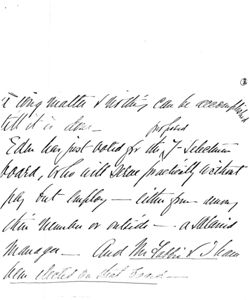 matter & nothing can be accomplished
till it is done —
proposed
Eden has just voted for the 7- Selectmen
board, who will serve practically without
pay but employ — either from among
their number or outside — a salaried
manager — And & I have
been elected on that Board —